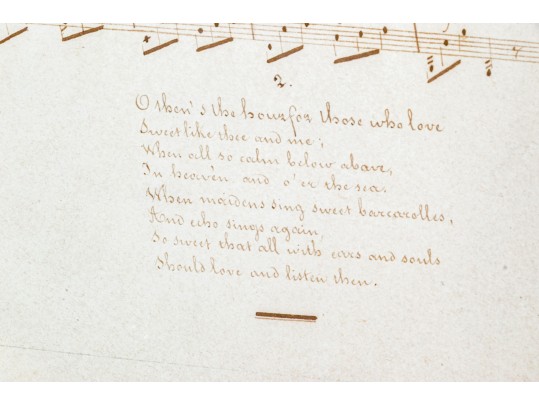 2.
O then's the hour for those who love
Sweet like thee and me;
When all so calm below above,
In heav'n and o'er the sea.
When maidens sing sweet barcarolles,
And echo sings again,
So sweet that all with ears and souls
Should love and listen then.